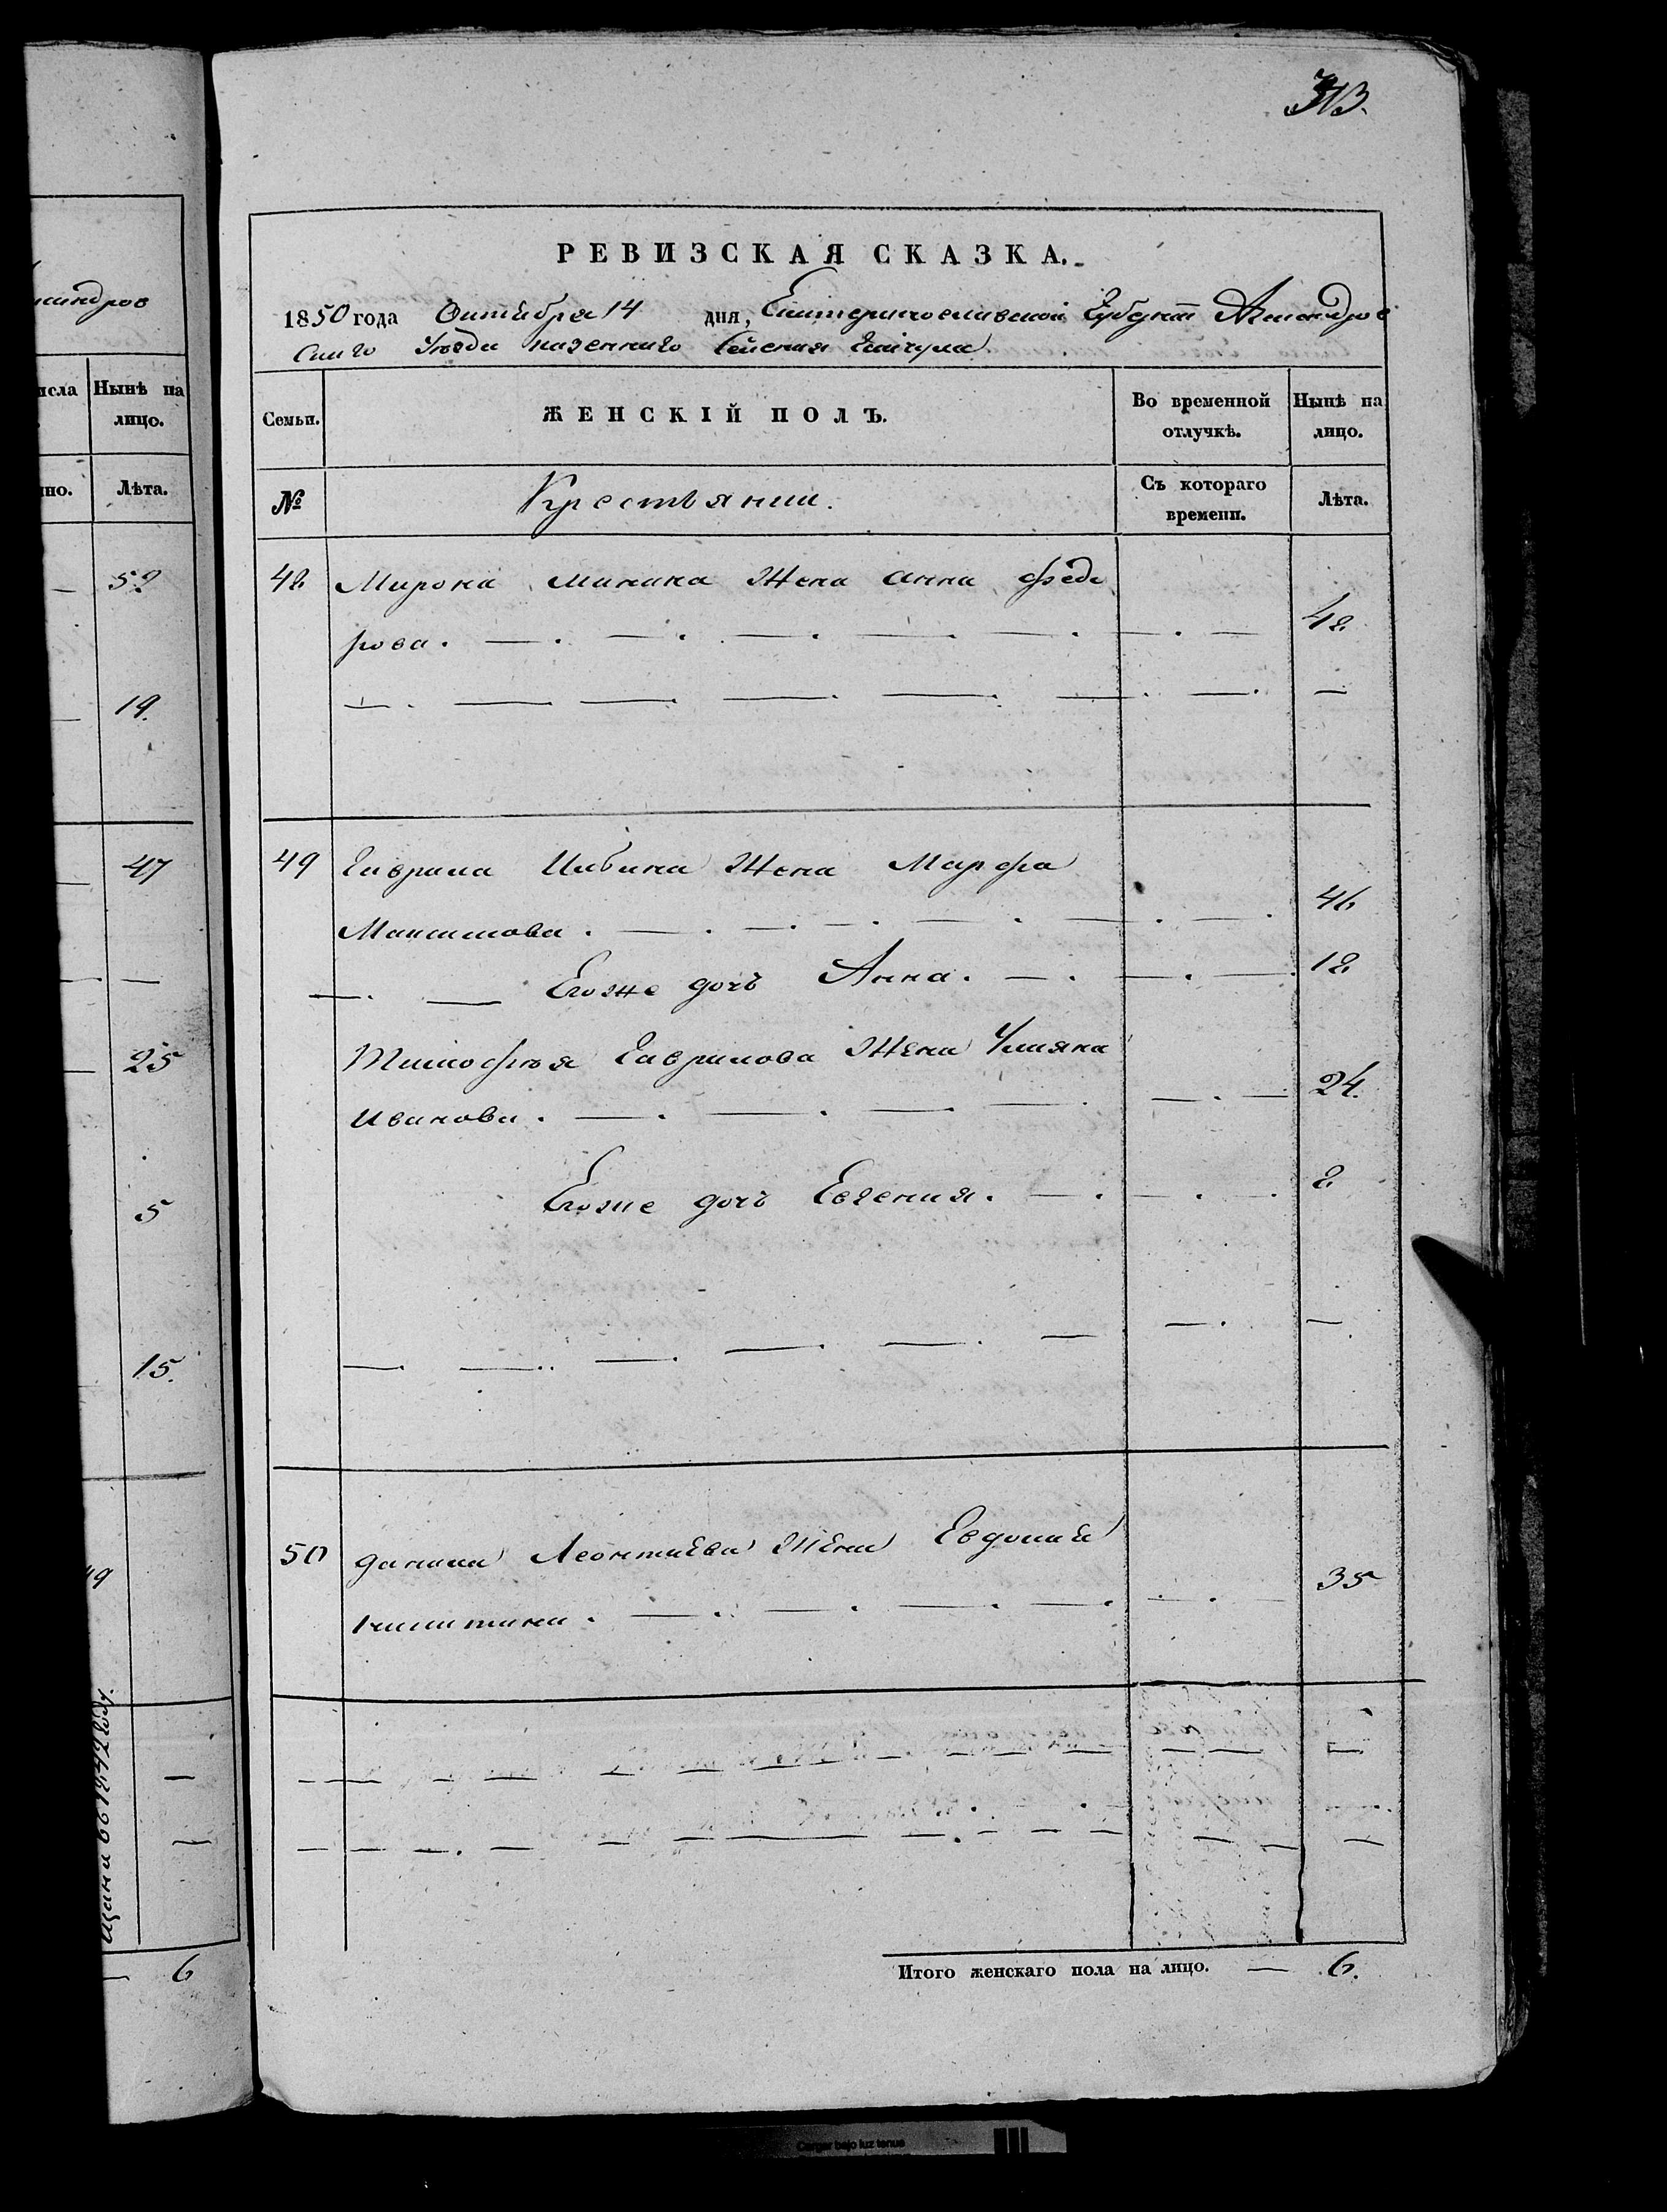 313.
РЕВИЗСКАЯ СКАЗКА.
1850 года Октября 14 дня, Екатеринославской Губерніи Александров
скаго Уезда казеннаго Селения Гайчула
Семьи.
ЖЕНСКІЙ ПОЛЪ.
Во временной отлучкѣ.
Нынѣ на лицо.
№
Крестьянии.
Съ котораго времени.
Лѣта.
48 Мирона Минина Жена анна Федо
рова. 48
49 Гаврила Жена Марфа
Максимова. 46
Егоже дочь Анна. 18
Тимофѣя Гаврилова Жена Улияна
Иванова. 24.
Егоже дочь Евгения. 8
50 данила Леонтиева Жена Евдокия
никитина. 35
Итого женскаго пола на лицо. — 6.
ксандров
исла
Нынѣ на лицо.
но.
Лѣта.
52
19.
47
25
5
15.
49
6